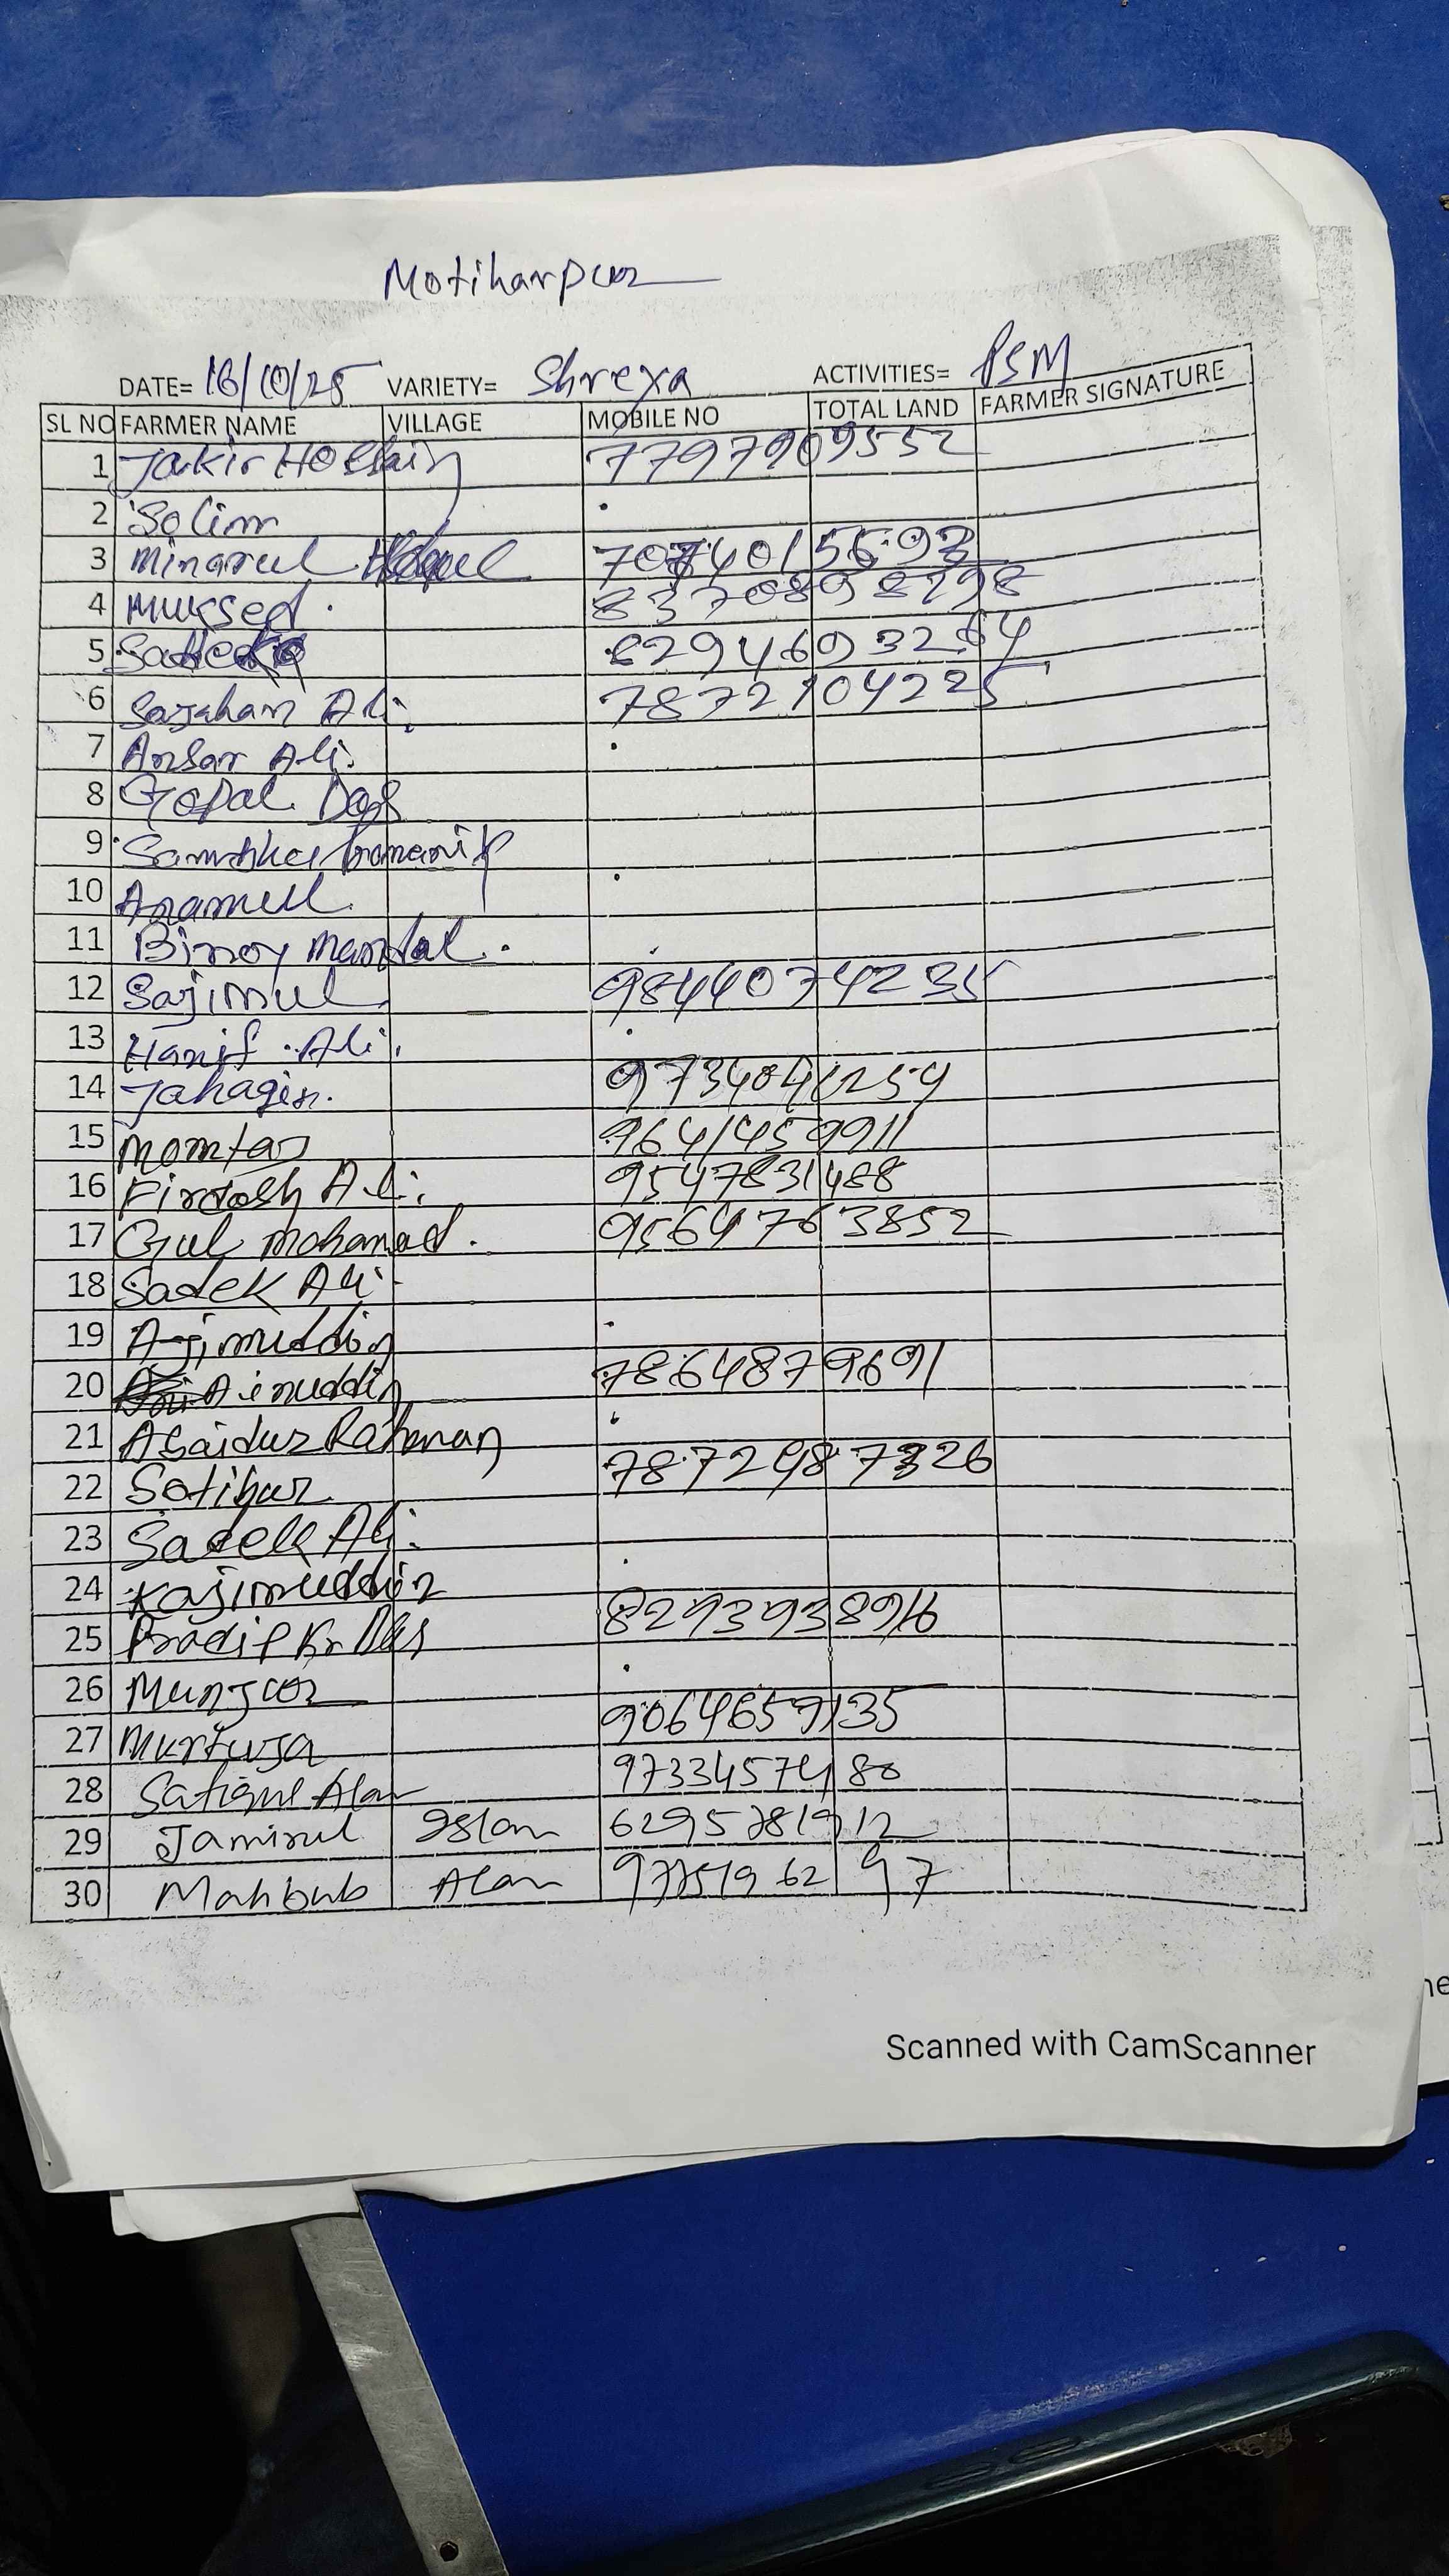 Motiharpur
DATE= 16/10/25 VARIETY= Shreya ACTIVITIES= PSM
SL NO FARMER NAME VILLAGE MOBILE NO TOTAL LAND FARMER SIGNATURE
1 Jakir Hossain 7797909552
2 Solim
3 Minarul
4 Muksed.
5
6 Sajahan Ali. 7872104225
7 Ansar Ali.
8 Gopal Das
9
10 Anamul
11 Binoy Mandal.
12 Sajimul 9844074235
13 Hanif Ali.
14 Jahagir. 9734041254
15 Momtaz 9641459911
16 Firdosh Ali. 9547831488
17 Gul Mohamad. 9564763852
18 Sadek Ali
19 Ajimuddin
20 Ainuddin 7864879691
21 Abaidur Rahman
22 Sotibur 7872487326
23 Sadek Ali.
24 Kajimuddin
25 Pradip Kr Das 8293938916
26 Munjur
27 Murtuja 9064659135
28 Safiqul Alam 9733457480
29 Jamirul Islam 6295781912
30 Mahbub Alam
Scanned with CamScanner